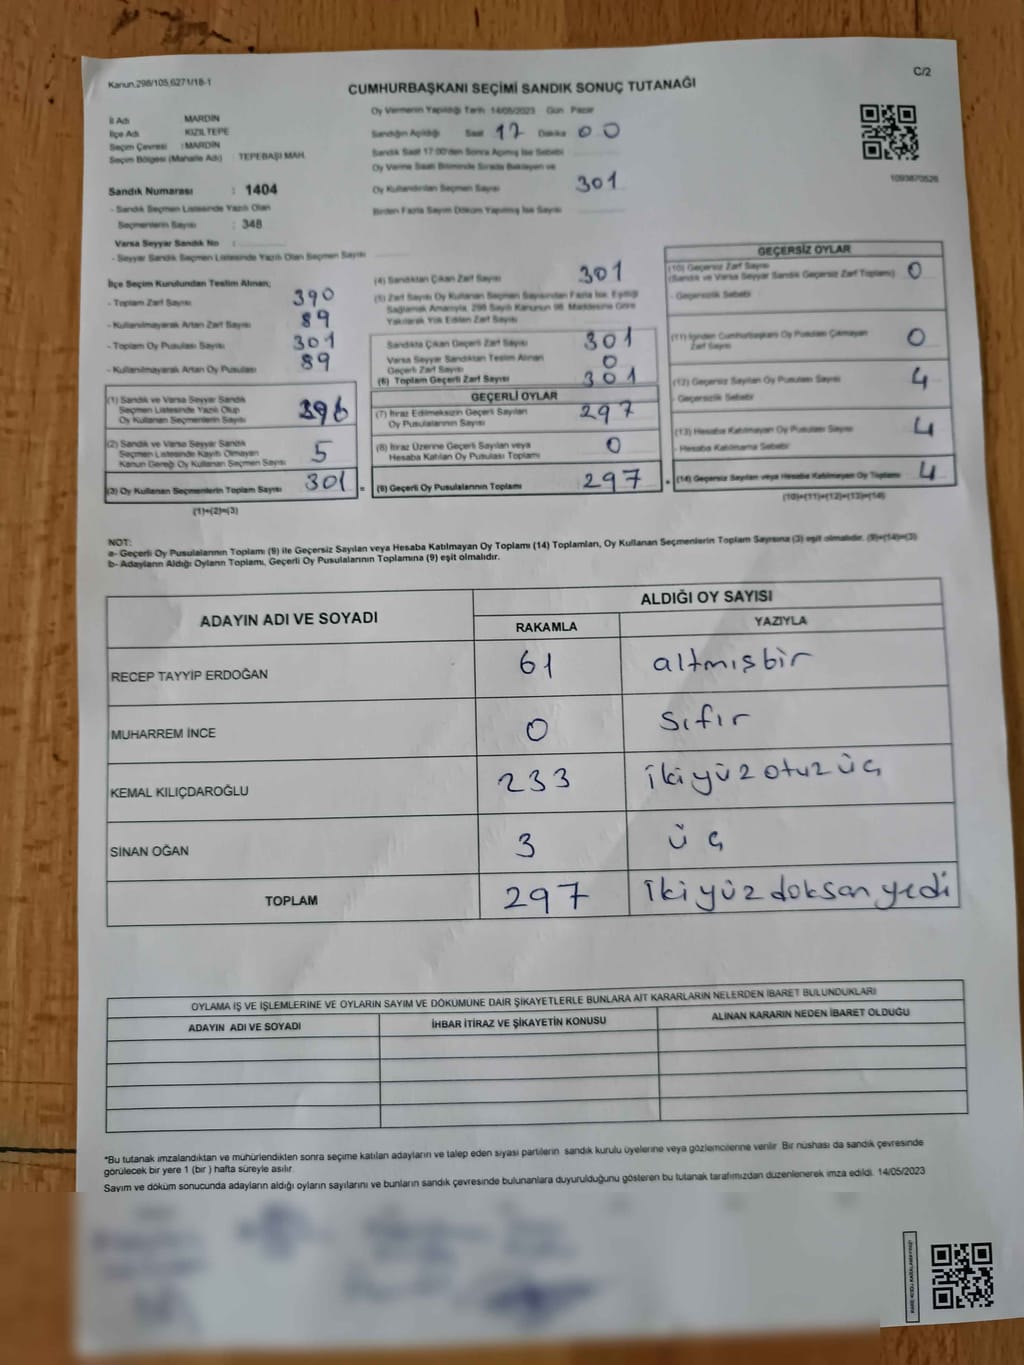 Kanun.298/105,6271/18-1
C/2
CUMHURBAŞKANI SEÇİMİ SANDIK SONUÇ TUTANAĞI
İl Adı MARDİN
İlçe Adı KIZILTEPE
Seçim Çevresi : MARDİN
Seçim Bölgesi (Mahalle Adı) : TEPEBAŞI MAH.
Sandık Numarası : 1404
- Sandık Seçmen Listesinde Yazılı Olan
Seçmenlerin Sayısı : 348
Varsa Seyyar Sandık No :
- Seyyar Sandık Seçmen Listesinde Yazılı Olan Seçmen Sayısı
Oy Vermenin Yapıldığı Tarih 14/05/2023 Gün Pazar
Sandığın Açıldığı Saat 17 Dakika 00
Sandık Saat 17:00'den Sonra Açılmış İse Sebebi
Oy Verme Saati Bitiminde Sırada Bekleyen ve
Oy Kullandırılan Seçmen Sayısı 301
Birden Fazla Sayım Döküm Yapılmış İse Sayısı
1093870526
İlçe Seçim Kurulundan Teslim Alınan;
- Toplam Zarf Sayısı 390
- Kullanılmayarak Artan Zarf Sayısı 89
- Toplam Oy Pusulası Sayısı 301
- Kullanılmayarak Artan Oy Pusulası 89
(1) Sandık ve Varsa Seyyar Sandık
Seçmen Listesinde Yazılı Olup
Oy Kullanan Seçmenlerin Sayısı
(2) Sandık ve Varsa Seyyar Sandık
Seçmen Listesinde Kayıtlı Olmayan
Kanun Gereği Oy Kullanan Seçmen Sayısı 5
(3) Oy Kullanan Seçmenlerin Toplam Sayısı 301 =
(1)+(2)=(3)
(4) Sandıktan Çıkan Zarf Sayısı 301
(5) Zarf Sayısı Oy Kullanan Seçmen Sayısından Fazla İse, Eşitliği
Sağlamak Amacıyla, 298 Sayılı Kanunun 98. Maddesine Göre
Yakılarak Yok Edilen Zarf Sayısı
Sandıkta Çıkan Geçerli Zarf Sayısı 301
Varsa Seyyar Sandıktan Teslim Alınan
Geçerli Zarf Sayısı 0
(6) Toplam Geçerli Zarf Sayısı 301
GEÇERLİ OYLAR
(7) İtiraz Edilmeksizin Geçerli Sayılan
Oy Pusulalarının Sayısı 297
(8) İtiraz Üzerine Geçerli Sayılan veya
Hesaba Katılan Oy Pusulası Toplamı 0
(9) Geçerli Oy Pusulalarının Toplamı 297 +
GEÇERSİZ OYLAR
(10) Geçersiz Zarf Sayısı
(Sandık ve Varsa Seyyar Sandık Geçersiz Zarf Toplamı) 0
- Geçersizlik Sebebi
(11) İçinden Cumhurbaşkanı Oy Pusulası Çıkmayan
Zarf Sayısı 0
(12) Geçersiz Sayılan Oy Pusulası Sayısı 4
- Geçersizlik Sebebi
(13) Hesaba Katılmayan Oy Pusulası Sayısı 4
- Hesaba Katılmama Sebebi
(14) Geçersiz Sayılan veya Hesaba Katılmayan Oy Toplamı 4
(10)+(11)+(12)+(13)=(14)
NOT:
a- Geçerli Oy Pusulalarının Toplamı (9) ile Geçersiz Sayılan veya Hesaba Katılmayan Oy Toplamı (14) Toplamları, Oy Kullanan Seçmenlerin Toplam Sayısına (3) eşit olmalıdır. (9)+(14)=(3)
b- Adayların Aldığı Oyların Toplamı, Geçerli Oy Pusulalarının Toplamına (9) eşit olmalıdır.
ADAYIN ADI VE SOYADI ALDIĞI OY SAYISI
RAKAMLA YAZIYLA
RECEP TAYYİP ERDOĞAN 61 altmışbir
MUHARREM İNCE 0 Sıfır
KEMAL KILIÇDAROĞLU 233 İkiyüzotuzüç
SİNAN OĞAN 3 üç
TOPLAM 297 İkiyüzdoksanyedi
OYLAMA İŞ VE İŞLEMLERİNE VE OYLARIN SAYIM VE DÖKÜMÜNE DAİR ŞİKAYETLERLE BUNLARA AİT KARARLARIN NELERDEN İBARET BULUNDUKLARI
ADAYIN ADI VE SOYADI İHBAR İTİRAZ VE ŞİKAYETİN KONUSU ALINAN KARARIN NEDEN İBARET OLDUĞU
*Bu tutanak imzalandıktan ve mühürlendikten sonra seçime katılan adayların ve talep eden siyasi partilerin sandık kurulu üyelerine veya gözlemcilerine verilir. Bir nüshası da sandık çevresinde
görülecek bir yere 1 (bir) hafta süreyle asılır.
Sayım ve döküm sonucunda adayların aldığı oyların sayılarını ve bunların sandık çevresinde bulunanlara duyurulduğunu gösteren bu tutanak tarafımızdan düzenlenerek imza edildi. 14/05/2023